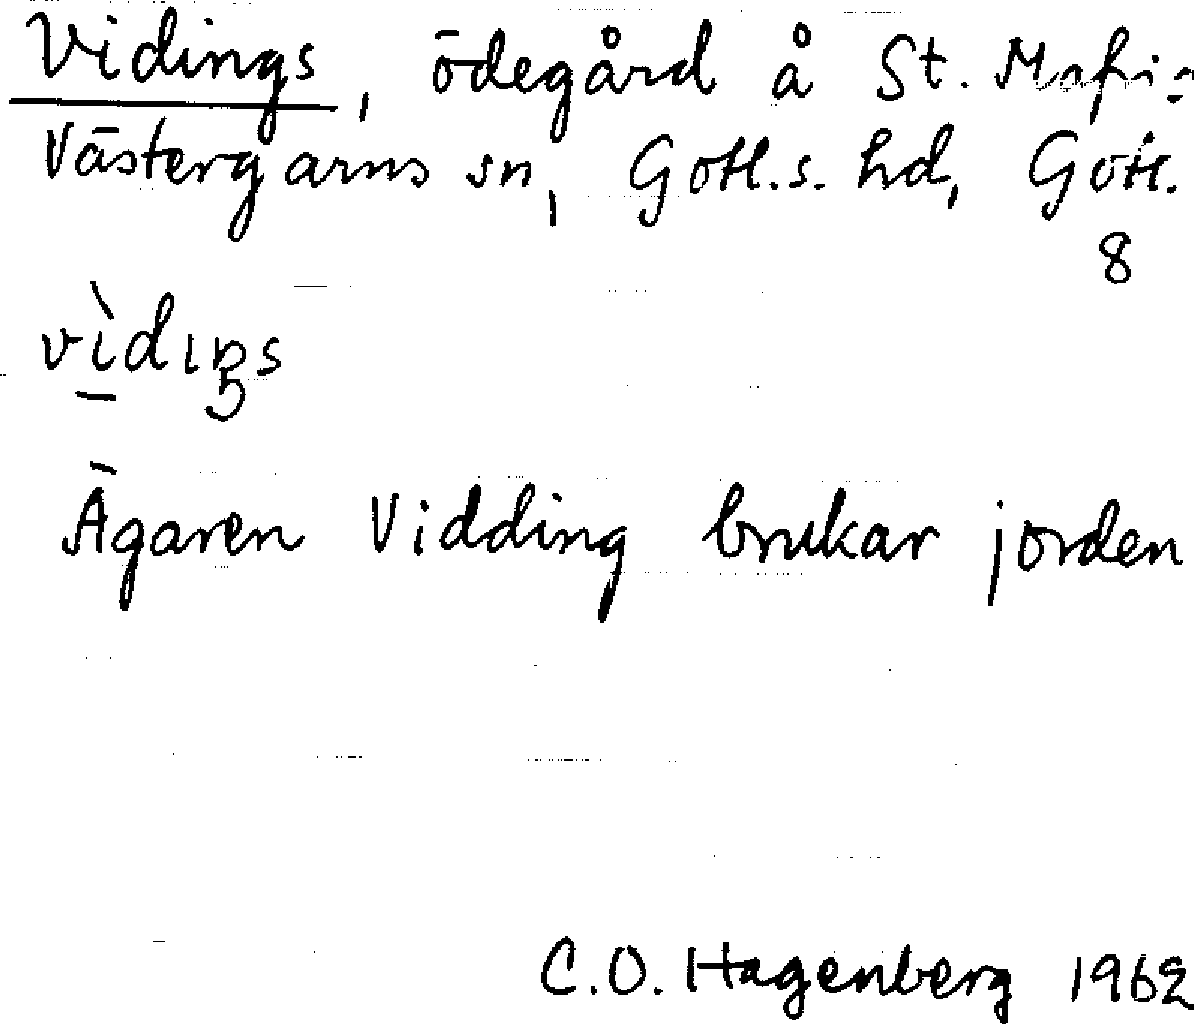 Vidings, ödegård å St. Mafri:
Västergarns sn, Gotl.s. hd, Gotl.
8
vìdıŋs
Ägaren Vidding brukar jorden
C.O. Hagenberg 1962